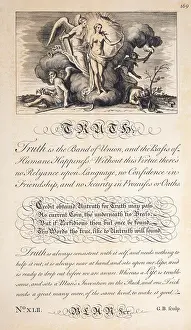 169
TRUTH.
Truth is the Band of Union, and the Basis of
Humane Happiness Without this Virtue there is
no Relyance upon Language, no Confidence in
Friendship, and no Security in Promises or Oaths
Credit obtains Untruth for Truth may pass
As current Coin, tho' underneath tis Brass:
But if Perfidious thou but once art found,
The Words tho true, like to Untruth will sound
Truth is always consistent with it self, and needs nothing to
help it out; it is always near at hand, and sits upon our Lips, and
is ready to drop out before we are aware. Whereas a Lye is trouble-
some, and sets a Man's Invention on the Rack, and one Trick
needs a great many more, of the same kind, to make it good.
No. XLII.
BLANK.
G.B. Sculp.